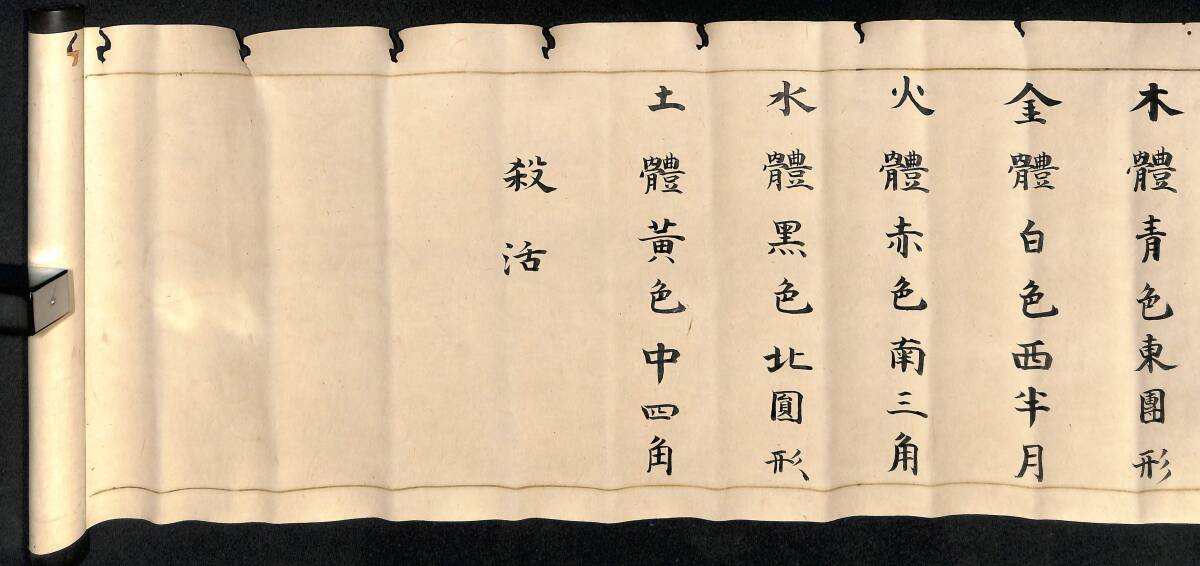 木體青色東團形
金體白色西半月
火體赤色南三角
水體黑色北圓形
土體黃色中四角
殺活